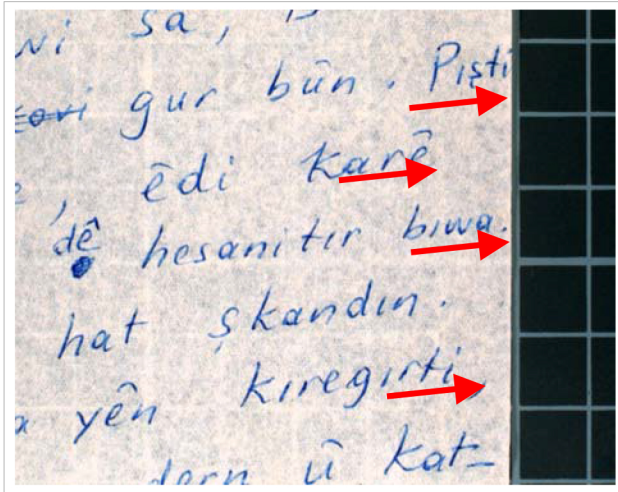 sa,
gur bûn. Pıştı
, êdi Karê
dê hesanitır bıwa.
hat şkandın.
yên kıregırti
dern û Kat-